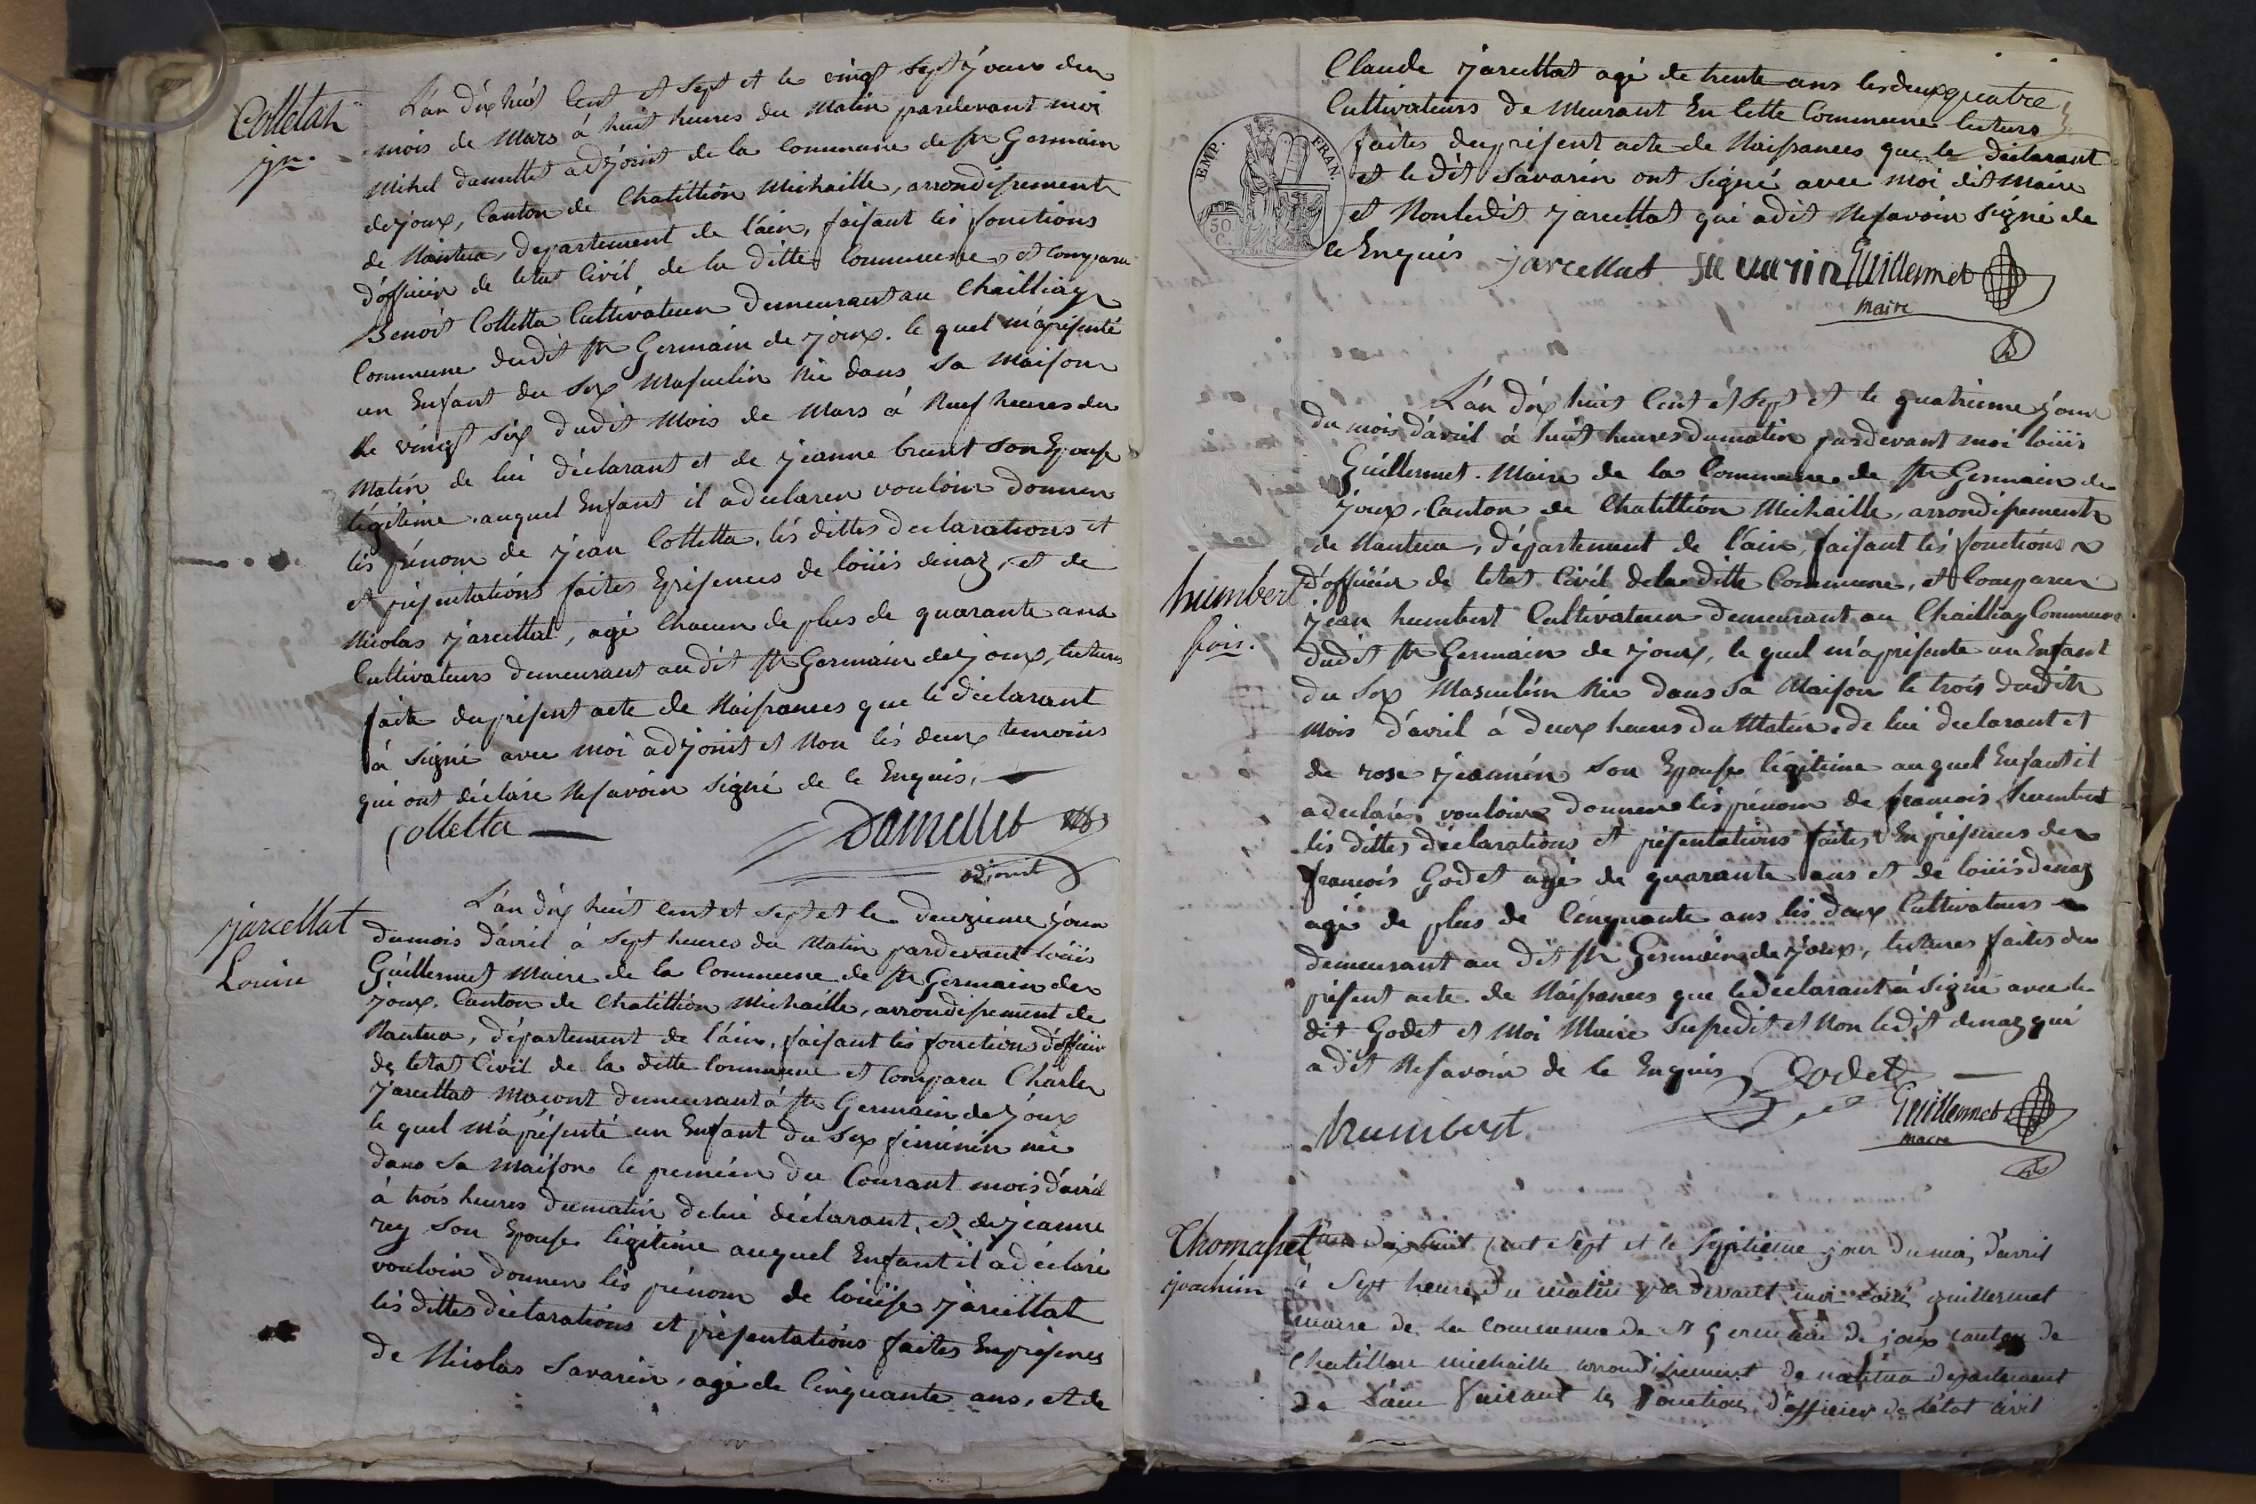 Colletta
jn.
L'an dix huit Cent et Sept et le vingt Sept jour du
mois de Mars à huit heures du Matin pardevant moi
Mihel damellet adjoint de la Commune de St Germain
dejoux, Canton de Chatilliôn Michaille, arrondissement
de Nantua, departement de l'ain, faisant lés fonctions
d'officier de letat Civil de la ditte Commune, et comparu
Benoit Colletta Cultivateur demeurant au Chailliay
Commune dudit St Germain de joux. le quel m'a présenté
un Enfant du Sex Masculin Née dans Sa Maison
le vingt Six dudit Mois de Mars à Neuf heures du
Matin de lui déclarant et de jeanne brunt Son Epouse
légitime. auquel Enfant il a declarer vouloir donner
lés prénom de jean Colletta. lés dittes declarations et
et présentations faites En présences de loüis denaz, et de
Nicolas jarcellat, agé Chacun de plus de quarante ans
Cultivateurs demeurant audit St Germain de joux, lecture
faite du présent acte de Naissances que le déclarant
à Signé avec moi adjoint et Non lés deux temoins
qui ont déclaré Ne savoir Signé de Ce Enquis.
Colletta
Damellet
adjoint
jarcellat
Louise
L'an dix huit Cent et Sept et le deuzieme jour
dumois d'avril à Sept heures du Matin pardevant loüis
Guillermet Maire de la Commune de St Germain de
joux. Canton de Chatilliôn Michaille, arrondissement de
Nantua, département de l'ain, faisant lés fonctions d'officier
de letat Civil de la ditte Commune et Comparu Charle
jarcellat Maçont demeurant à St Germain de joux
le quel m'a présenté un Enfant du Sex féminin née
dans Sa Maison le premier du Courant mois d'avril
à trois heures dumatin de lui déclarant, et de jeanne
rey Son Epouse légitime auquel Enfant il a déclaré
vouloir donner lés prénom de loüise jarcellat
lés dittes déclarations et présentations faites En présences
de Nicolas Savarin, agé de Cinquante ans, et de
Claude jarcellat agé de trente ans les deux quatre
Cultivateurs de Meurant En Cette Commune lecture
faites du présent acte de Naissances que le déclarant
et le dit Savarin ont Signé avec Moi dit Maire
et Non ledit jarcellat qui a dit Ne savoir Signé de
Ce Enquis
EMP. FRAN.
50 C.
jarcellat Savarin Guillermet
Maire
L'an dix huit Cent et Sept et le quatrieme jour
du mois d'avril à huit heures du matin pardevant moi loüis
Guillermet. Maire de la Commune de St Germain de
joux, Canton de Chatilliôn Michaille, arrondissement
de Nantua, département de l'ain, faisant lés fonctions
humbert
fois.
d'officier de letat Civil de la ditte Commune, et Comparu
jean humbert Cultivateur demeurant au Chailliay Commune
dudit St Germain de joux, le quel m'a présente un Enfant
du Sex Masculin Née dans Sa Maison le trois dudit
Mois d'avril à deux heures du Matin, de lui declarant et
de rose jeannin Son Epouse légitime auquel Enfant il
a declaré vouloir donner lés prénom de francois humbert
lés dittes déclarations et présentations faites En présences de
francois Godet agé de quarante ans et de loüis denaz
agé de plus de Cinquante ans lés deux Cultivateurs
demeurant au dit St Germain de joux, lectures faites du
présent acte de Naissances que le declarant à Signé avec le
dit Godet et Moi Maire Susdit et Non ledit denaz qui
a dit Ne savoir de Ce Enquis
Godet
humbert
Guillermet
Maire
Thomasset
joachim
L'an dix huit Cent Sept et le Septieme jour du mois d'avril
à Sept heures du matin par devant moi Loüis guillermet
maire de La Commune de St Germain de joux canton de
Chatillon michaille arrondissement de nantua departement
de L'ain Faisant les Fonctions d'officier de L'état civil